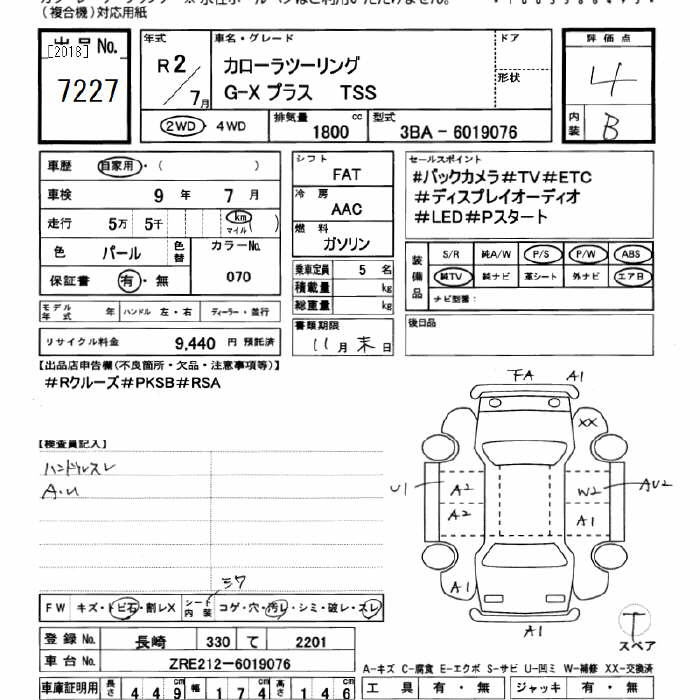 (複合機)対応用紙
出品No.
[2018]
7227
年式
R2/7月
車名・グレード
カローラツーリング
G-X プラス TSS
ドア
形状
2WD・4WD
排気量
1800 cc
型式
3BA-6019076
評価点
4
内装
B
車歴 自家用・( )
車検 9年 7月
走行 5万 5千 km マイル ( )
色 パール 色替
カラーNo.
070
保証書 有・無
モデル年式 年 ハンドル 左・右 ディーラー・並行
リサイクル料金 9,440 円 預託済
シフト
FAT
冷房
AAC
燃料
ガソリン
乗車定員 5 名
積載量 kg
総重量 kg
書類期限
11月末日
セールスポイント
#バックカメラ#TV#ETC
#ディスプレイオーディオ
#LED#Pスタート
装備品
S/R 純A/W P/S P/W ABS
純TV 純ナビ 革シート 外ナビ エアB
ナビ型番:
後日品
【出品店申告欄(不良箇所・欠品・注意事項等)】
#Rクルーズ#PKSB#RSA
【検査員記入】
ハンドルスレ
A.U
FA A1
XX
U1 A2 W2 AU2
A2 A1
A1 A1
A1
T
スペア
シワ
FW キズ・トビ石・割レX シート内装 コゲ・穴・汚レ・シミ・破レ・スレ
登録No. 長崎 330 て 2201
車台No. ZRE212-6019076
A-キズ C-腐食 E-エクボ S-サビ U-凹ミ W-補修 XX-交換済
車庫証明用 長さ 4 4 9 cm 幅 1 7 4 cm 高さ 1 4 6 cm
工具 有・無 ジャッキ 有・無